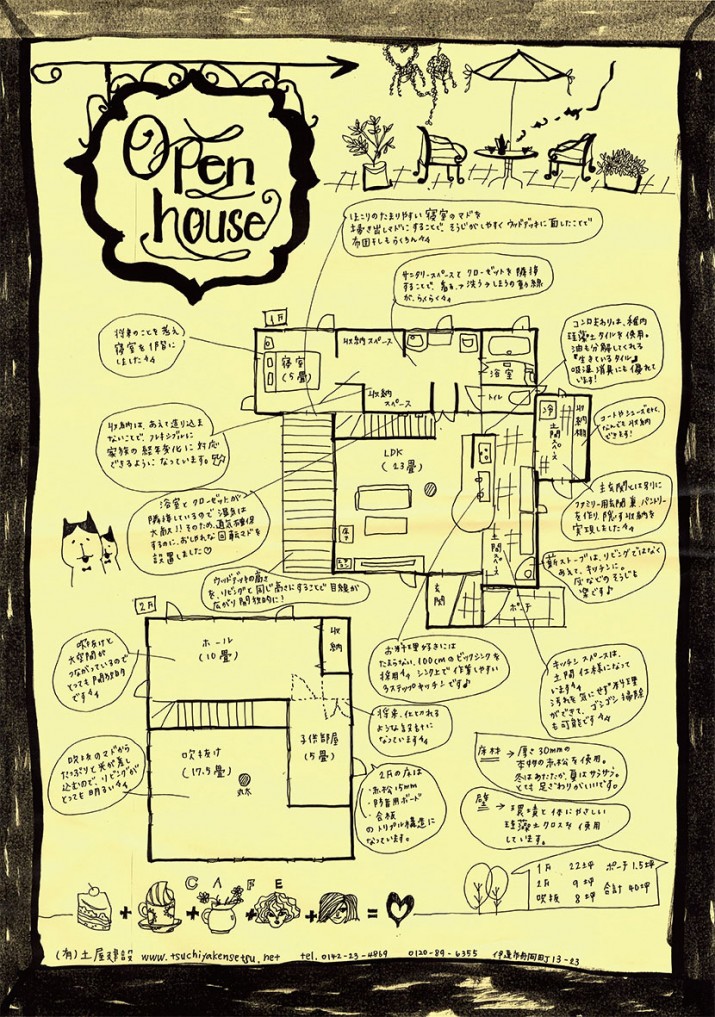 Open
house
ほこりのたまりやすい寝室のマドを
掃き出しマドにすることで、そうじがしやすく ウッドデッキに面したことで
布団干しもらくちん
サニタリースペースと クローゼットを隣接
することで、着る→洗う→しまうの動線
が、らくらく
コンロまわりは、稚内
珪藻土タイルを使用。
油も分解してくれる
『生きているタイル』
吸湿消臭にも優れて
います!
将来のことを考え
寝室を1階に
しました
1F
寝室
(5畳)
収納スペース
収納
スペース
浴室
トイレ
冷
土間スペース
収納棚
コートやシューズをはじめ、
なんでも収納
できます!
収納は、あえて造り込ま
ないことで、フレキシブルに
家族の経年変化に対応
できるようになっています。
LDK
(23畳)
土間スペース
玄関
ポーチ
主玄関とは別に
ファミリー用玄関兼、パントリー
を作り、隠す収納を
実現しました
浴室とクローゼットが
隣接しているので湿気は
大敵!!そのため、通気を確保
するのに、おしゃれな回転マドを
設置しました♡
薪ストーブは、リビングではなく
あえて、キッチンに。
灰などのそうじも
楽です♪
ウッドデッキの高さ
を、リビングと同じ高さにすることで目線が
広がり開放的に!
2F
ホール
(10畳)
収納
吹抜けと
大空間が
つながっているので
とっても開放的
です
お料理好きには
たまらない、100cmのビックシンクを
採用 シンク上で作業しやすい
3ステップキッチンです♪
キッチンスペースは、
土間仕様になって
います
汚れを気にせず料理
ができて、ゴシゴシ掃除
も可能です
将来、仕切れる
ような設計に
なっています
子供部屋
(5畳)
吹抜け
(17.5畳)
吹抜のマドから
たっぷりと光が差し
込むので、リビングが
とっても明るい
2Fの床は
・赤松15mm
・防音用ボード
・合板
のトリプル構造に
なっています。
床材 → 厚さ30mmの
本物の赤松を使用。
冬はあたたか、夏はサラサラ。
とても足ざわりがいいです。
壁 → 環境と体にやさしい
珪藻土クロスを使用
しています。
1F 22坪 ポーチ1.5坪
2F 9坪 合計40坪
吹抜 8坪
CAFE
+ + + + =
(有)土屋建設 www.tsuchiyakensetsu.net tel.0142-23-4869 0120-89-6355 伊達市舟岡町13-23